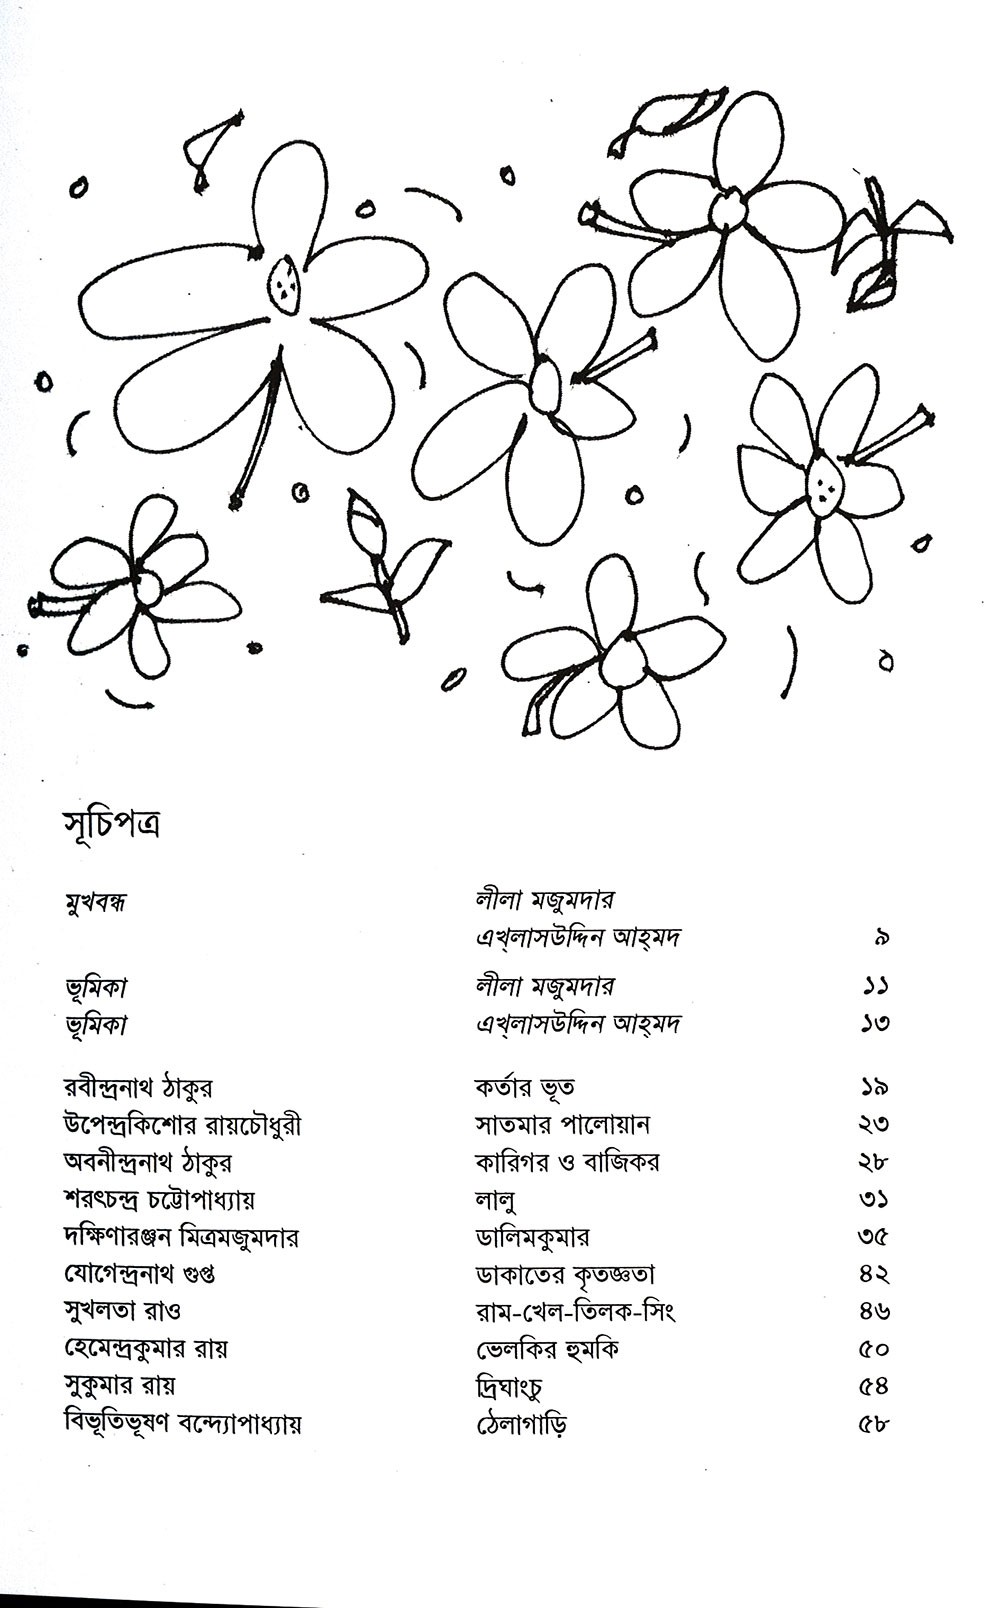 সূচিপত্র
মুখবন্ধ লীলা মজুমদার
এখ্‌লাসউদ্দিন আহ্‌মদ ৯
ভূমিকা লীলা মজুমদার ১১
ভূমিকা এখ্‌লাসউদ্দিন আহ্‌মদ ১৩
রবীন্দ্রনাথ ঠাকুর কর্তার ভূত ১৯
উপেন্দ্রকিশোর রায়চৌধুরী সাতমার পালোয়ান ২৩
অবনীন্দ্রনাথ ঠাকুর কারিগর ও বাজিকর ২৮
শরৎচন্দ্র চট্টোপাধ্যায় লালু ৩১
দক্ষিণারঞ্জন মিত্রমজুমদার ডালিমকুমার ৩৫
যোগেন্দ্রনাথ গুপ্ত ডাকাতের কৃতজ্ঞতা ৪২
সুখলতা রাও রাম-খেল-তিলক-সিং ৪৬
হেমেন্দ্রকুমার রায় ভেলকির হুমকি ৫০
সুকুমার রায় দ্রিঘাংচু ৫৪
বিভূতিভূষণ বন্দ্যোপাধ্যায় ঠেলাগাড়ি ৫৮